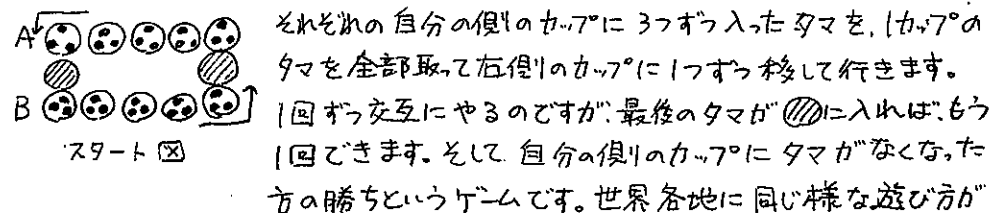 A
B
スタート図
それぞれの自分の側のカップに3つずつ入ったタマを、1カップの
タマを全部取って右側のカップに1つずつ移して行きます。
1回ずつ交互にやるのですが、最後のタマが に入れば、もう
1回できます。そして自分の側のカップにタマがなくなった
方の勝ちというゲームです。世界各地に同じ様な遊び方が